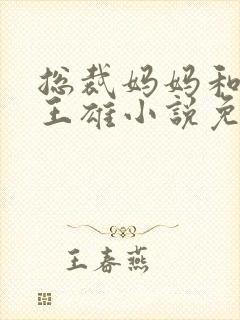 总裁妈妈和
王雄小说免
王春燕